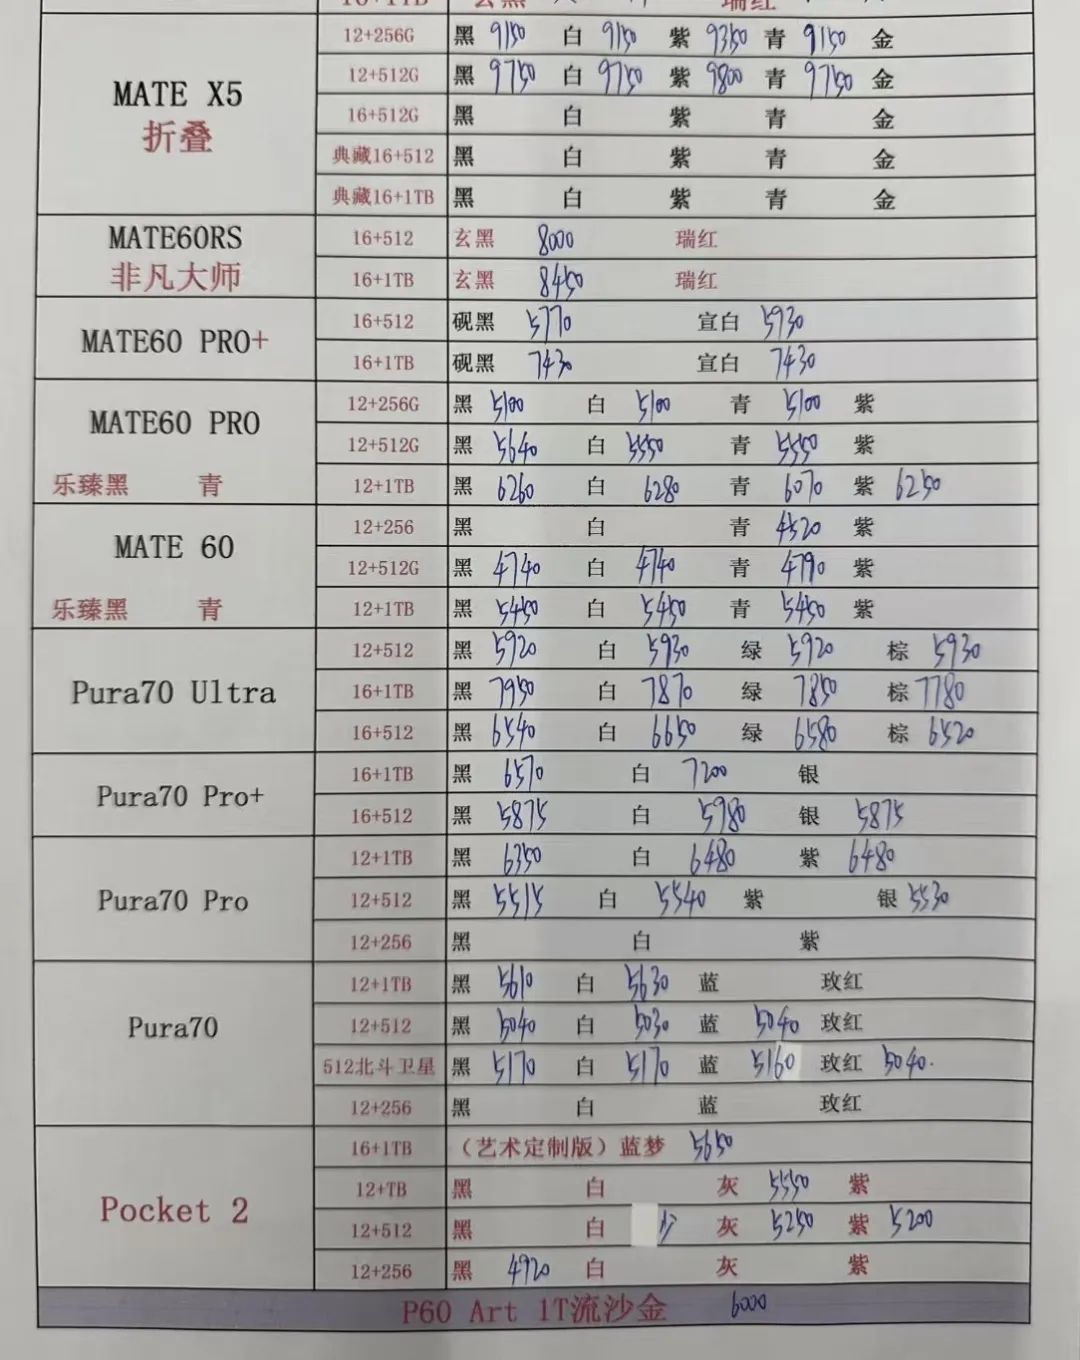 16+1TB 玄黑 瑞红
MATE X5
折叠
12+256G 黑 9150 白 9150 紫 9350 青 9150 金
12+512G 黑 9750 白 9750 紫 9800 青 9750 金
16+512G 黑 白 紫 青 金
典藏16+512 黑 白 紫 青 金
典藏16+1TB 黑 白 紫 青 金
MATE60RS
非凡大师
16+512 玄黑 8000 瑞红
16+1TB 玄黑 8450 瑞红
MATE60 PRO+
16+512 砚黑 5770 宣白 5930
16+1TB 砚黑 7430 宣白 7430
MATE60 PRO
乐臻黑 青
12+256G 黑 5100 白 5100 青 5100 紫
12+512G 黑 5640 白 5550 青 5550 紫
12+1TB 黑 6260 白 6280 青 6070 紫 6250
MATE 60
乐臻黑 青
12+256 黑 白 青 4520 紫
12+512G 黑 4740 白 4740 青 4790 紫
12+1TB 黑 5450 白 5450 青 5450 紫
Pura70 Ultra
12+512 黑 5920 白 5930 绿 5920 棕 5930
16+1TB 黑 7950 白 7870 绿 7850 棕 7780
16+512 黑 6540 白 6650 绿 6580 棕 6520
Pura70 Pro+
16+1TB 黑 6570 白 7200 银
16+512 黑 5875 白 5980 银 5875
Pura70 Pro
12+1TB 黑 6350 白 6480 紫 6480
12+512 黑 5515 白 5540 紫 银 5530
12+256 黑 白 紫
Pura70
12+1TB 黑 5610 白 5630 蓝 玫红
12+512 黑 5040 白 5030 蓝 5040 玫红
512北斗卫星 黑 5170 白 5170 蓝 5160 玫红 5040.
12+256 黑 白 蓝 玫红
Pocket 2
16+1TB （艺术定制版）蓝梦 5650
12+TB 黑 白 灰 5550 紫
12+512 黑 白 灰 5250 紫 5200
12+256 黑 4920 白 灰 紫
P60 Art 1T流沙金 6000